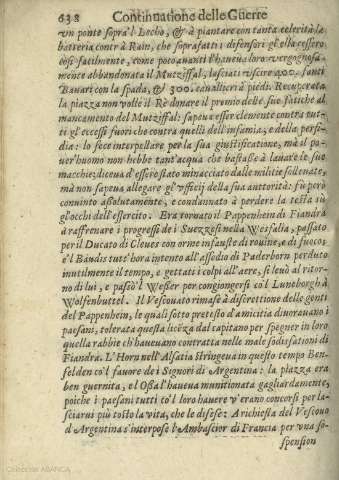 638 Continuatione delle Guerre
vn ponte sopra'l Lecho, & à piantare con tanta celerità la
batteria contr à Rain, che soprafatti i difensori gl'ela cessero
così facilmente, come poco auanti l'haueua loro vergognosa-
mente abbandonata il Mutzissal, lasciati vscire 400. fanti
Bauari con la spada, & 300. caualieri à piedi. Recuperata
la piazza non volle il Rè donare il premio delle sue fatiche al
mancamento del Mutzissal: sapeua esser clemente contra tut-
ti gl'eccessi fuori che contra quelli dell'infamia, e della perfi-
dia: lo fece interpellare per la sua giustificatione, mà il po-
uer'huomo non hebbe tant'acqua che bastasse à lauare le sue
macchie; diceua d'essere stato minacciato dalle militie solleuate,
mà non sapeua allegare gl'vfficij della sua autorità: fù però
conuinto assolutamente, e condannato à perdere la testa sù
gl'occhi dell'essercito. Era tornato il Pappenheim di Fiandra
à raffrenare i progressi de i Suezzesi nella Vvesfalia, passato
per il Ducato di Cleues con orme infauste di rouine, e di fuoco;
e'l Baudis tutt'hora intento all'assedio di Paderborn perduto
inutilmente il tempo, e gettati i colpi all'aere, si leuò al ritor-
no di lui, e passò'l Weßer per congiongersi co'l Luneborgh à
Wolfenbuttel. Il Vescouato rimase à discretione delle genti
del Pappenheim, le quali sotto pretesto d'amicitia diuorauano i
paesani, tolerata questa licēza dal capitano per spegner in loro
quella rabbie ch'haueuano contratta nelle male sodisfationi di
Fiandra. L'Horn nell'Alsatia stringeua in questo tempo Ben-
felden co'l fauore de i Signori di Argentina: la piazza era
ben guernita, e l'Ossa l'haueua munitionata gagliardamente,
poiche i paesani tutti co'l loro hauere v'erano concorsi per la-
sciarui più tosto la vita, che le difese: A richiesta del Vescouo
d'Argentina s'interpose l'Ambascior di Francia per vna so-
spension
Colección ABANCA